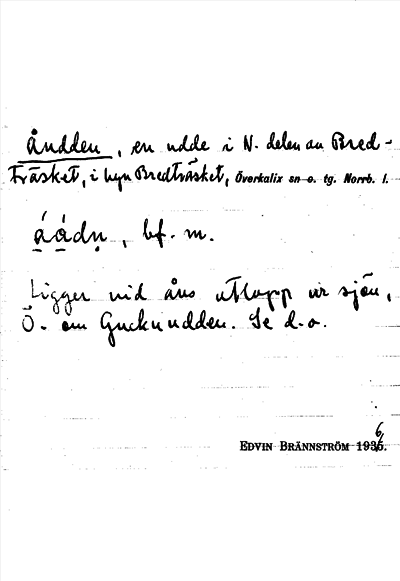 Åudden, en udde i N. delen av Bred-
träsket, i byn Bredträsket, Överkalix sn o. tg. Norrb. l.
á̱á̱dṇ, bf. m.
Ligger vid åns utlopp ur sjön,
Ö. om Guckuudden. Se d. o.
EDVIN BRÄNNSTRÖM 1936.